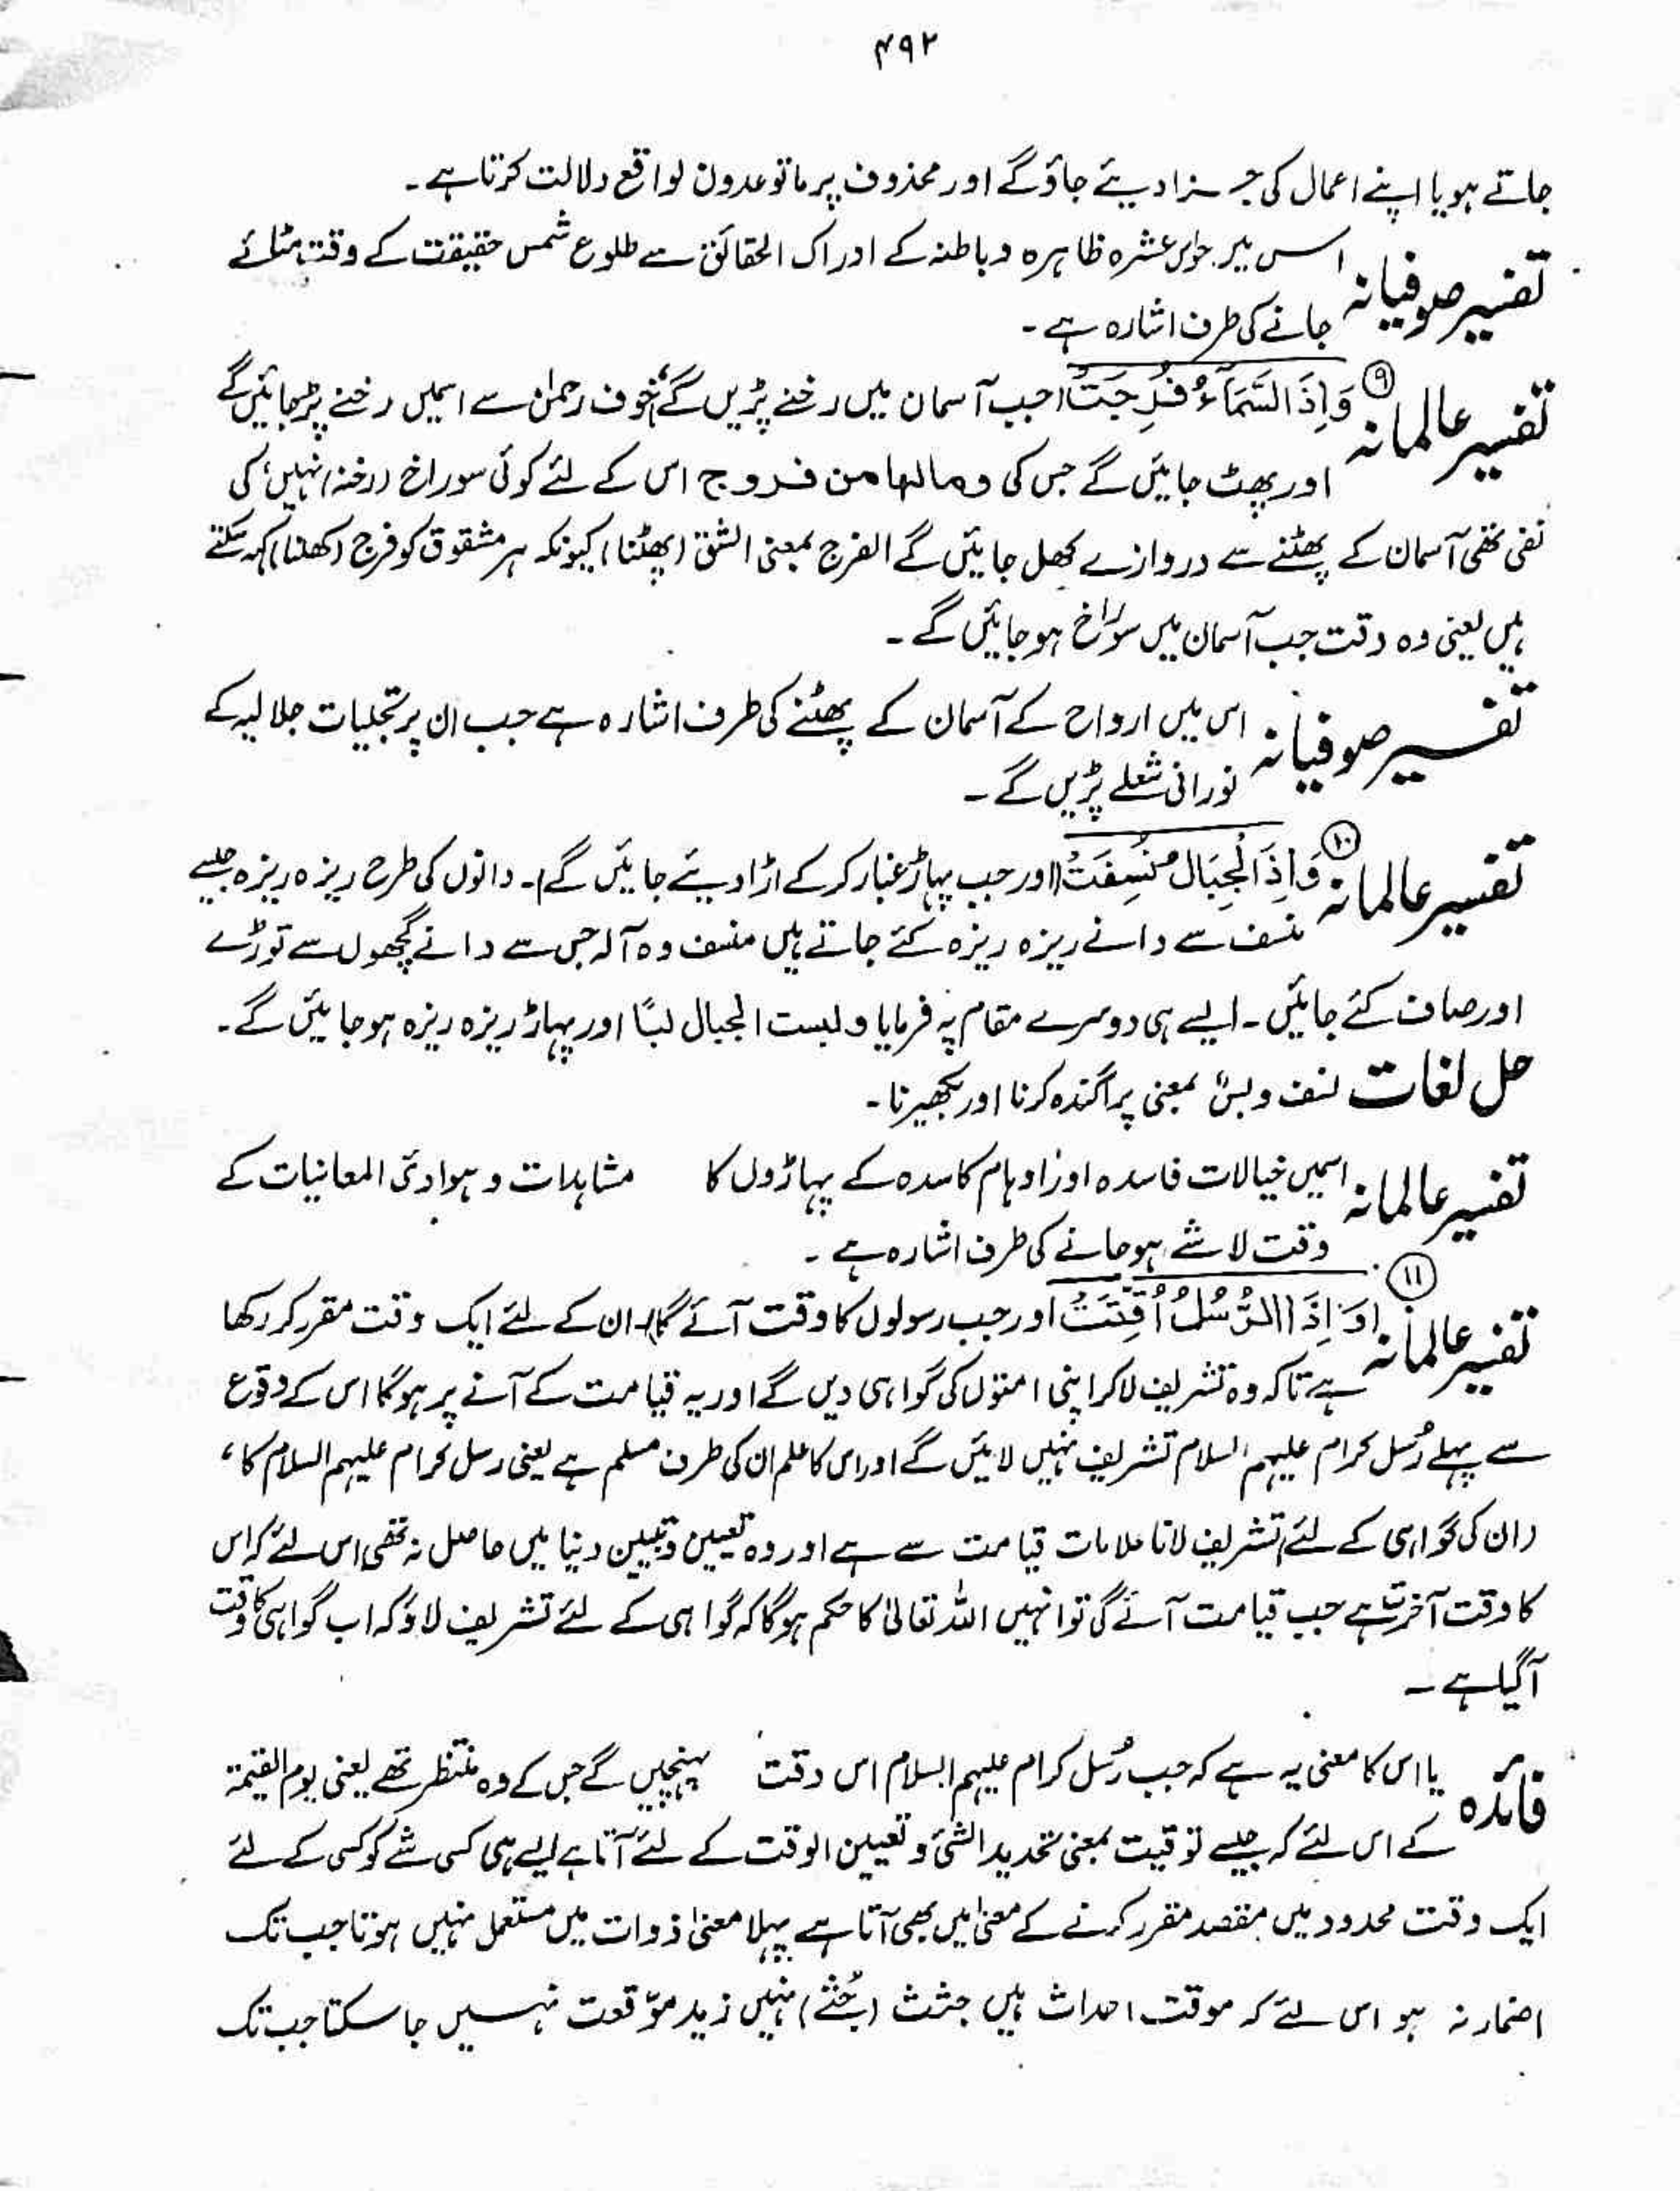 ۴۹۲
جاتے ہو یا اپنے اعمال کی جزا دیئے جاؤ گے اور محذوف پر ماتوعدون لواقع دلالت کرتا ہے ۔
تفسیر صوفیانہ اس میں حواس عشرہ ظاہرہ و باطنہ کے ادراک الحقائق سے طلوع شمس حقیقت کے وقت مٹائے
جانے کی طرف اشارہ ہے ۔
تفسیر عالمانہ ⑨ وَاِذَا السَّمَآءُ فُرِجَتْ (جب آسمان میں رخنے پڑیں گے) خوف رحمٰن سے اسمیں رخنے پڑجائیں گے
اور پھٹ جائیں گے جس کی ومالہا من فروج اس کے لئے کوئی سوراخ (رخنہ) نہیں، کی
نفی تھی آسمان کے پھٹنے سے دروازے کھل جائیں گے الفرج بمعنی الشق (پھٹنا) کیونکہ ہر مشقوق کو فرج (کھلنا) کہہ سکتے
ہیں یعنی وہ وقت جب آسمان میں سوراخ ہو جائیں گے ۔
تفسیر صوفیانہ اس میں ارواح کے آسمان کے پھٹنے کی طرف اشارہ ہے جب ان پر تجلیات جلالیہ کے
نورانی شعلے پڑیں گے ۔
تفسیر عالمانہ ⑩ وَاِذَا الْجِبَالُ نُسِفَتْ (اور جب پہاڑ غبار کر کے اڑا دیئے جائیں گے) ۔ دانوں کی طرح ریزہ ریزہ جیسے
منسف سے دانے ریزہ ریزہ کئے جاتے ہیں منسف وہ آلہ جس سے دانے گچھوں سے توڑے
اور صاف کئے جائیں ۔ ایسے ہی دوسرے مقام پہ فرمایا و بست الجبال بسًا اور پہاڑ ریزہ ریزہ ہو جائیں گے ۔
حل لغات نسف و بسّ بمعنی پراگندہ کرنا اور بکھیرنا ۔
تفسیر عالمانہ اسمیں خیالات فاسدہ اور اوہام کاسدہ کے پہاڑوں کا مشاہدات و ہوادی المعانیات کے
وقت لاشے ہو جانے کی طرف اشارہ ہے ۔
تفسیر عالمانہ ⑪ وَاِذَا الرُّسُلُ اُقِّتَتْ (اور جب رسولوں کا وقت آئے گا) ۔ ان کے لئے ایک وقت مقرر کر رکھا
ہے تاکہ وہ تشریف لاکر اپنی امتوں کی گواہی دیں گے اور یہ قیامت کے آنے پر ہوگا اس کے وقوع
سے پہلے رُسل کرام علیہم السلام تشریف نہیں لائیں گے اور اس کا علم ان کی طرف مسلم ہے یعنی رسل کرام علیہم السلام کا،
(ان کی گواہی کے لئے) تشریف لانا علامات قیامت سے ہے اور وہ تعیین و تبیین دنیا میں حاصل نہ تھی اس لئے کہ اس
کا وقت آخرت ہے جب قیامت آئے گی تو انہیں اللہ تعالیٰ کا حکم ہوگا کہ گواہی کے لئے تشریف لاؤ کہ اب گواہی کا وقت
آگیا ہے ۔
فائدہ یا اس کا معنی یہ ہے کہ جب رُسل کرام علیہم السلام اس وقت پہنچیں گے جس کے وہ منتظر تھے یعنی یوم القیٰمۃ
کے اس لئے کہ جیسے توقیت بمعنی تحدید الشئ و تعیین الوقت کے لئے آتا ہے ایسے ہی کسی شے کو کسی کے لئے
ایک وقت محدود میں مقصد مقرر کرنے کے معنیٰ میں بھی آتا ہے پہلا معنیٰ ذوات میں مستعمل نہیں ہوتا جب تک
اضمار نہ ہو اس لئے کہ موقت احداث ہیں جثث (جُثّے) نہیں زید مؤقت نہیں جا سکتا جب تک